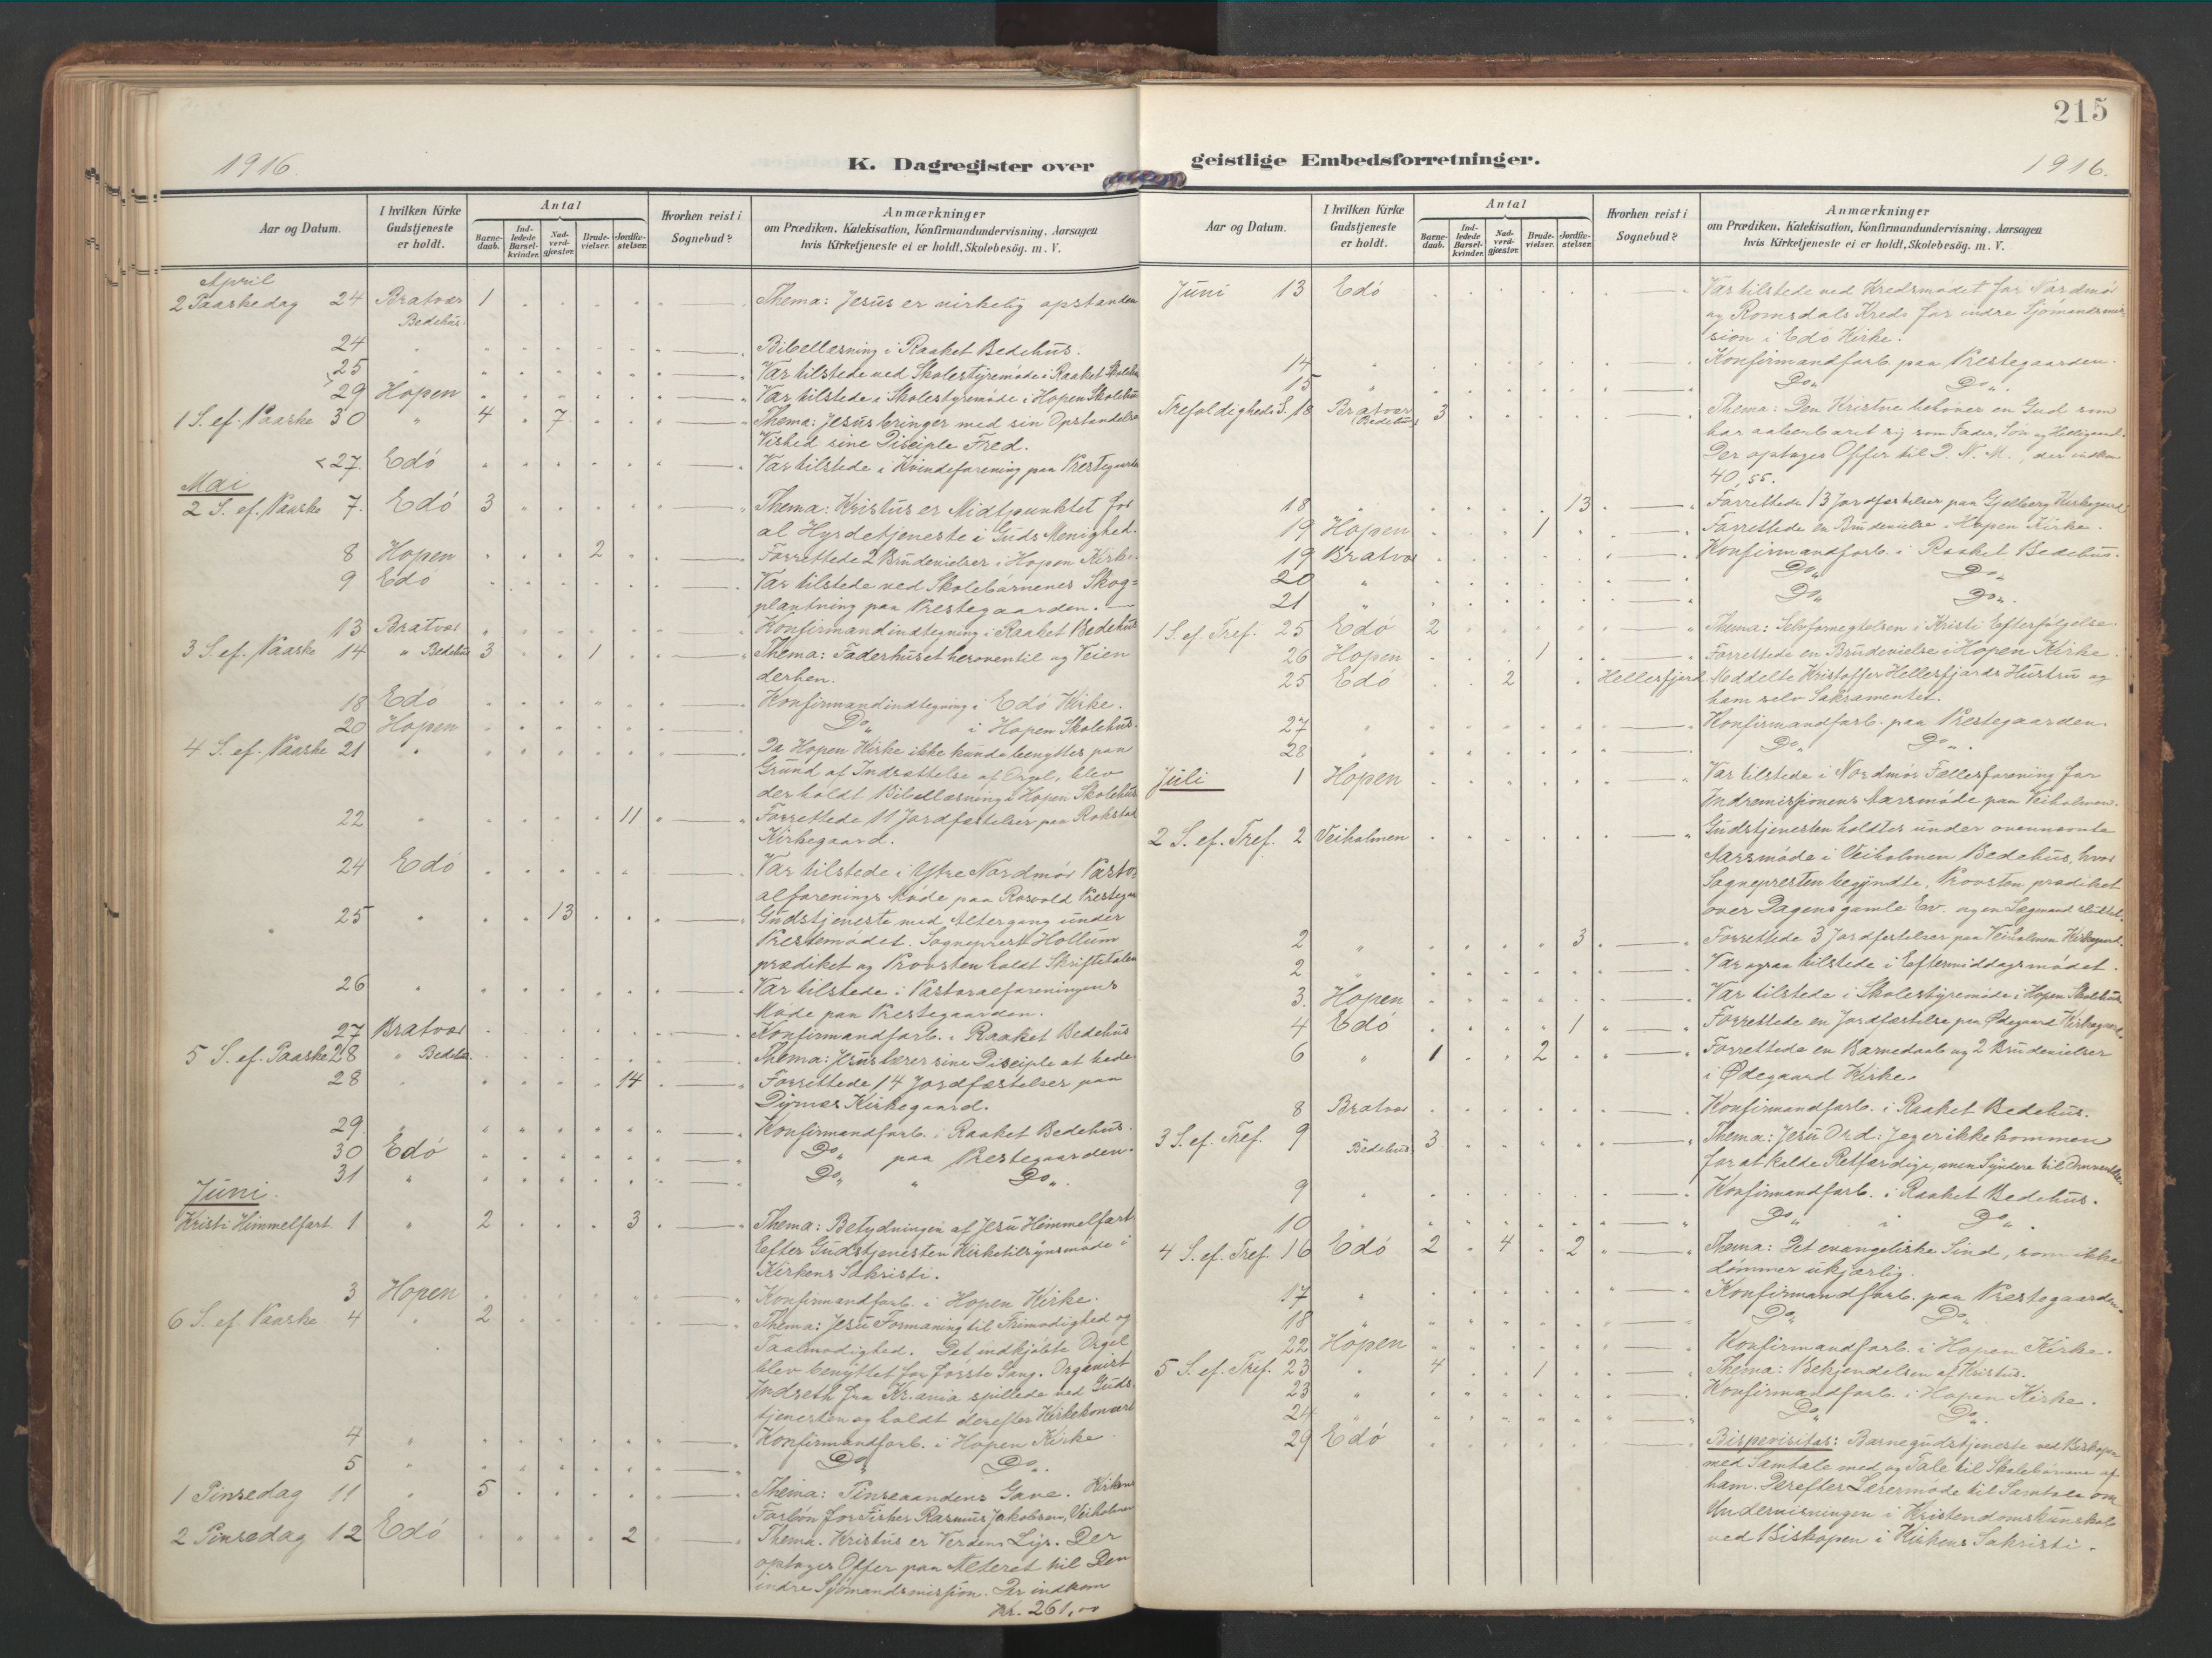 215
1916.
K. Dagregister over
geistlige Embedsforretninger.
1916.
Aar og Datum.
I hvilken Kirke Gudstjeneste er holdt.
Antal
Barne-daab.
Ind-ledede Barsel-kvinder.
Nad-verd-gjæster.
Brude-vielser.
Jordfæ-stelser.
Hvorhen reist i Sognebud?
Anmærkninger
om Prædiken, Katekisation, Konfirmandundervisning, Aarsagen
hvis Kirketjeneste ei er holdt, Skolebesög. m. V.
April
2 Paaskedag 24 Bratvær 1 Thema: Jesus er virkelig opstanden
Bedehus.
24 " Bibellæsning i Raaket Bedehus.
25 " Var tilstede ved Skolestyremøde i Raaket
29 Hopen Var tilstede i Skolestyremøde i Hopen Skolehus
1 S. ef. Paaske 30 " 4 7 Thema: Jesus bringer med sin Opstandelses
Vished sine Disciple Fred.
27. Edö Var tilstede i Kvindeforening paa Prestegaarden
Mai
2 S. ef. Paaske 7. Edö 3 Thema: Kristus er Midtpunktet for
al Hyrdetjeneste i Guds Menighed.
8 Hopen 2 Forrettede 2 Brudevielser i Hopen Kirke.
9 Edö Var tilstede ved Skolebörnenes Skog=
plantning paa Prestegaarden.
13 Bratvær Konfirmandindtegning i Raaket Bedehus
3 S. ef. Paaske 14 " Bedehus 3 1 Thema: Faderhuset heroventil og Veien
derhen.
18 Edö Konfirmandindtegning i Edö Kirke.
20 Hopen Do " i Hopen Skolehus.
4 S. ef. Paaske 21 " Da Hopen Kirke ikke kunde benyttes paa
Grund af Indsættelse af Orgel, blev
der holdt Bibellæsning i Hopen Skolehus
22 " 11 Forrettede 11 Jordfæstelser paa Rokstad
Kirkegaard.
24 Edö Var tilstede i Ytre Nordmör Pasto=
ralforenings Möde paa Rosvold Prestegaard
25 " 13 Gudstjeneste med Altergang under
Prestemödet. Sogneprest Hollum
prædiket og Provsten holdt Skriftetalen
26 " Var tilstede i Pastoralforeningens
Möde paa Prestegaarden.
27 Bratvær Konfirmandforb. i Raaket Bedehus
5 S. ef. Paaske 28 " Bedehus Thema: Jesus lærer sine Disciple at bede
28 " 14 Forrettede 14 Jordfæstelser paa
Dyrnes Kirkegaard.
29. " Konfirmandforb. i Raaket Bedehus.
30 Edö Do " paa Prestegaarden.
31 " Do " " Do ".
Juni.
Kristi Himmelfart. 1 " 2 3 Thema: Betydningen af Jesu Himmelfart
Efter Gudstjenesten Kirketilsynsmöde i
Kirkens Sakristi.
3 Hopen Konfirmandforb. i Hopen Kirke.
6 S. ef. Paaske 4 " 2 Thema: Jesu Formaning til Frimodighed og
Taalmodighed. Det indkjöbte Orgel
blev benyttet for förste Gang. Organist
Indseth fra Kr.ania spillede ved Guds
tjenesten og holdt derefter Kirkekoncert
4 " Konfirmandforb. i Hopen Kirke.
5 " Do " Do ".
1 Pinsedag 11 " 5 Thema: Pinseaandens Gave. Kirkens
Forbön for Fisher Rasmus Jakobsen, Veiholmen
2 Pinsedag 12 Edö 2 Thema. Kristus er Verdens Lys. Der
optoges Offer paa Alteret til Den
indre Sjömandsmission. Der indkom
Kr. 261,00
Aar og Datum.
I hvilken Kirke Gudstjeneste er holdt.
Antal
Barne-daab.
Ind-ledede Barsel-kvinder.
Nad-verd-gjæster.
Brude-vielser.
Jordfæ-stelser.
Hvorhen reist i Sognebud?
Anmærkninger
om Prædiken, Katekisation, Konfirmandundervisning, Aarsagen
hvis Kirketjeneste ei er holdt, Skolebesög. m. V.
Juni 13 Edö Var tilstede ved Kredsmödet for Nordmör
og Romsdals Kreds for indre Sjömandsmis-
sion i Edö Kirke.
14 " Konfirmandforb. paa Prestegaarden.
15 " Do " Do ".
Trefoldigheds S. 18 Bratvær 3 Thema: Den Kristne behöver en Gud som
(Bedehus) har aabenbaret sig som Fader, Sön og Helligaand.
Der optoges Offer til D. N. M., der indkom
40,55.
18 " 13 Forrettede 13 Jordfæstelser paa Gjelberg Kirkegaard
19 Hopen 1 Forrettede en Brudevielse i Hopen Kirke.
19 Bratvær Konfirmandforb. i Raaket Bedehus.
20 " Do " Do "
21 " Do " Do ".
1 S. ef. Tref. 25 Edö 2 Thema: Selvfornegtelsen i Kristi Efterfölgelse
26 Hopen 1 Forrettede en Brudevielse i Hopen Kirke.
25 Edö 2 Hellesfjord. Meddelte Kristoffer Hellesfjords Hustru og
ham selv Sakramentet.
27 " Konfirmandforb. paa Prestegaarden.
28 " Do " Do ".
Juli 1 Hopen Var tilstede i Nordmör Fællesforening for
Indremissionens Aarsmöde paa Veiholmen.
2 S. ef. Tref. 2 Veiholmen Gudstjenesten holdtes under ovennævnte
Aarsmöde i Veiholmen Bedehus, hvor
Sognepresten begyndte, Provsten prædiket
over Dagens gamle Ev. og en Lægmand sluttet.
2 " 3 Forrettede 3 Jordfestelser paa Veiholmen Kirkegaard.
2 " Var ogsaa tilstede i Eftermiddagsmödet.
3. Hopen Var tilstede i Skolestyremöde i Hopen Skolehus
4 Edö 1 Forrettede en Jordfæstelse paa Ødegaard Kirkegaard.
6 " 1 2 Forrettede en Barnedaab og 2 Brudevielser
i Ødegaard Kirke.
8 Bratvær Konfirmandforb. i Raaket Bedehus.
3 S. ef. Tref. 9 Bedehus. 3 Thema: Jesu Ord: Jeg er ikke kommen
for at kalde Retfærdige, men Syndere til Omvendelse.
9 " Konfirmandforb. i Raaket Bedehus.
10 " Do " i Do ".
4 S. ef. Tref. 16 Edö 2 4 2 Thema: Det evangeliske Sind, som ikke
dömmer ukjærlig.
17 " Konfirmandforb. paa Prestegaarden.
18 " Do " Do "
22 Hopen Konfirmandforb. i Hopen Kirke.
5 S. ef. Tref. 23 " 4 1 Thema: Bekjendelsen af Kristus.
23 " Konfirmandforb. i Hopen Kirke.
24 " Do " Do ".
29 Edö Bispevisitas: Barnegudstjeneste ved Biskopen
med Samtale med og Tale til Skolebörnene af
ham. Derefter Lærermöde til Samtale om
Undervisningen i Kristendomskunskab
ved Biskopen i Kirkens Sakristi.